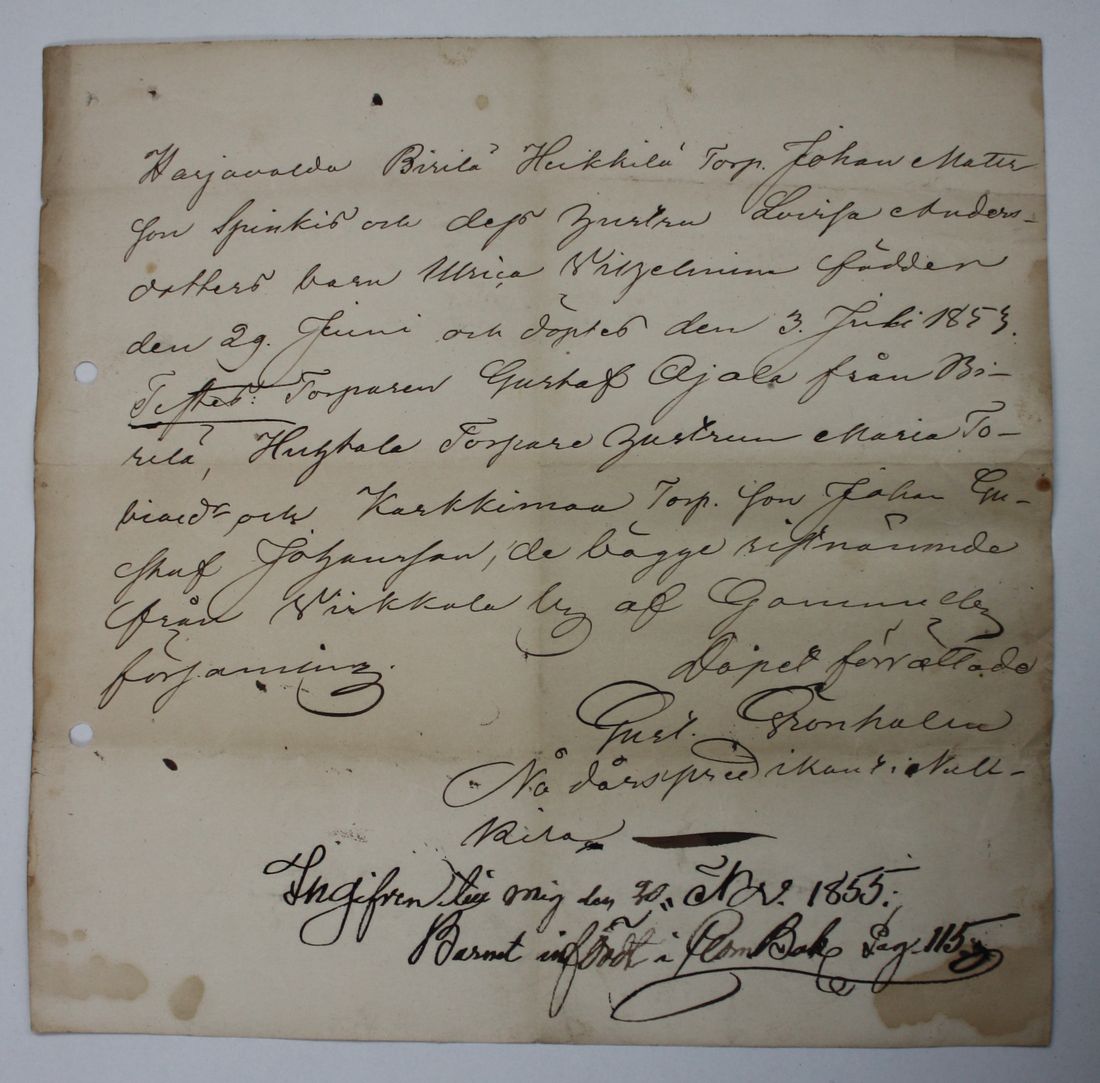 Harjavalda Birilä Heikkilä Torp. Johan Matts
son Spinkis och dess hustru Lovisa Anders-
dotters barn Ulrica Vilhelmina födder
den 29. Juni och döptes den 3. Juli 1853.
Testes: Torparen Gustaf Ojala från Bi-
rilä, Huhtala Torpare hustrun Maria To-
biaedr och Karkkimaa Torp. son Johan Gu-
staf Johansson, de bägge sistnämnde
från Virkkala by af Gammelby
församling. Döpet förrättade
Gust. Grönholm
Nådårspredikant i Nak-
kila
Ingifven till mig den 20. Nov. 1855.
Barnet infördt i Com Bok Pag. 115